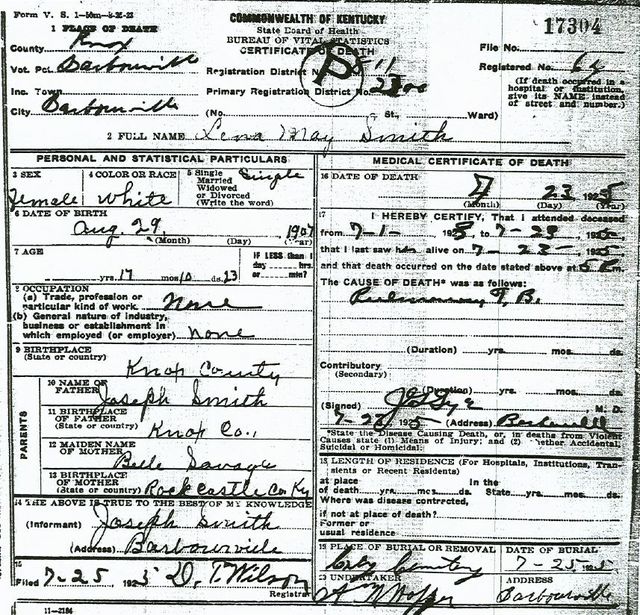 Form V. S. 1-10m-8-21-23
COMMONWEALTH OF KENTUCKY
State Board of Health
BUREAU OF VITAL STATISTICS
CERTIFICATE OF DEATH
17304
1 PLACE OF DEATH
County Knox
File No.
Vot. Pct. Barbourville
Registration District No. 811
Registered No. 62
Inc. Town
Primary Registration District No. 2300
(If death occurred in a hospital or institution, give its NAME instead of street and number.)
City Barbourville
(No. St., Ward)
P
2 FULL NAME Lena May Smith
PERSONAL AND STATISTICAL PARTICULARS
3 SEX Female
4 COLOR OR RACE White
5 Single Married Widowed or Divorced (Write the word) Single
6 DATE OF BIRTH
Aug. 29, 1907
(Month) (Day) (Year)
7 AGE
yrs. 17 mos 10 ds. 23
IF LESS than 1 day hrs. or min?
8 OCCUPATION
(a) Trade, profession or particular kind of work. None
(b) General nature of industry, business or establishment in which employed (or employer) None
9 BIRTHPLACE
(State or country)
Knox County
PARENTS
10 NAME OF FATHER Joseph Smith
11 BIRTHPLACE OF FATHER (State or country) Knox Co.,
12 MAIDEN NAME OF MOTHER Belle Savage
13 BIRTHPLACE OF MOTHER (State or country) Rockcastle Co Ky
14 THE ABOVE IS TRUE TO THE BEST OF MY KNOWLEDGE
(Informant) Joseph Smith
(Address) Barbourville
15
Filed 7-25 1925 D. T. Wilson
Registrar
11-2184
MEDICAL CERTIFICATE OF DEATH
16 DATE OF DEATH
23 1925
(Month) (Day) (Year)
17 I HEREBY CERTIFY, That I attended deceased
from 7-1- to 7-23-
that I last saw alive on 7-23-
and that death occurred on the date stated above at
The CAUSE OF DEATH* was as follows:
Pulmonary T. B.
(Duration) yrs. mos. ds.
Contributory
(Secondary)
(Duration) yrs. mos. ds.
(Signed) M. D.
(Address) Barbourville
*State the Disease Causing Death, or, in deaths from Violent Causes state (1) Means of Injury; and (2) whether Accidental, Suicidal or Homicidal.
18 LENGTH OF RESIDENCE (For Hospitals, Institutions, Transients or Recent Residents)
at place of death yrs. mos. ds. In the State yrs. mos. ds.
Where was disease contracted,
if not at place of death?
Former or
usual residence
19 PLACE OF BURIAL OR REMOVAL
DATE OF BURIAL
City Cemetery
7-25-1925
20 UNDERTAKER
ADDRESS
Barbourville